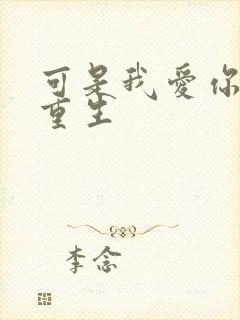 可是我爱你
重生
李念